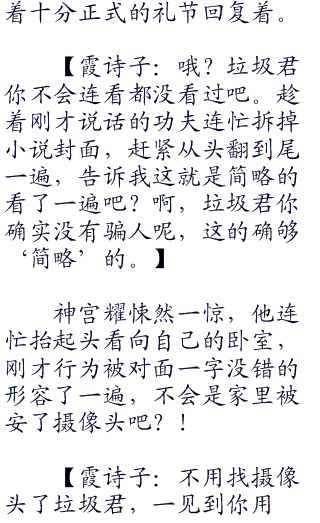 着十分正式的礼节回复着。
【霞诗子：哦？垃圾君
你不会连看都没看过吧。趁
着刚才说话的功夫连忙拆掉
小说封面，赶紧从头翻到尾
一遍，告诉我这就是简略的
看了一遍吧？啊，垃圾君你
确实没有骗人呢，这的确够
‘简略’的。】
神宫耀悚然一惊，他连
忙抬起头看向自己的卧室，
刚才行为被对面一字没错的
形容了一遍，不会是家里被
安了摄像头吧？！
【霞诗子：不用找摄像
头了垃圾君，一见到你用